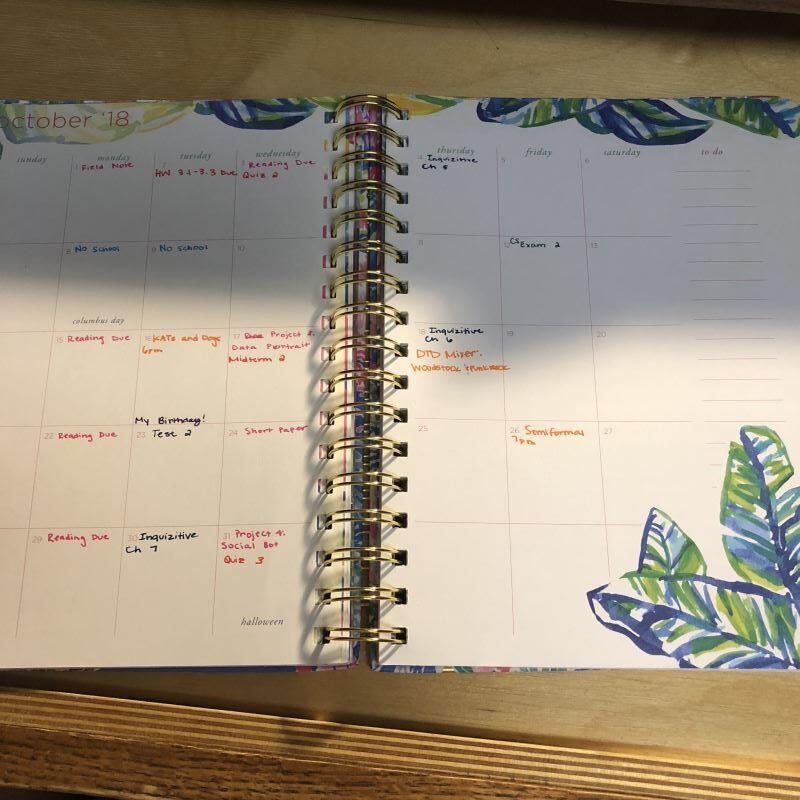 october '18
sunday monday tuesday wednesday thursday friday saturday to do
1 Field Note
2 HW 3.1-3.3 Due
3 Reading Due
Quiz 2
4 Inquizitive
Ch 5
5
6
8 No school
columbus day
9 No school
10
11
12 CS Exam 2
13
15 Reading Due
16 KATs and Dogs
6pm
My Birthday!
17 Project &
Data Portrait
Midterm 2
18 Inquizitive
Ch 6
DTD Mixer:
Woodstock
19
20
22 Reading Due
23 Test 2
24 Short Paper
25
26 Semiformal
7pm
27
29 Reading Due
30 Inquizitive
Ch 7
31 Project 4:
Social Bot
Quiz 3
halloween